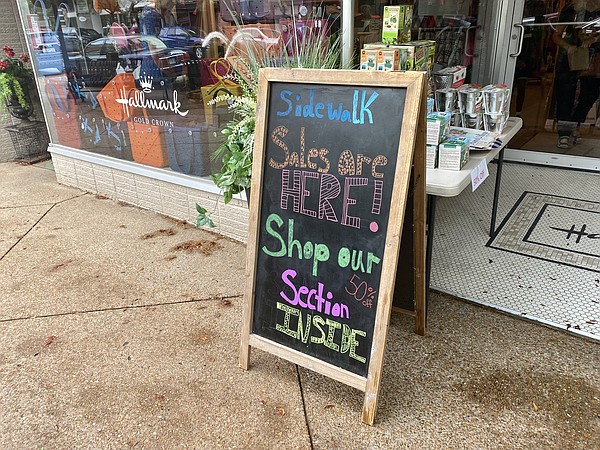 Hallmark
GOLD CROWN
Sidewalk
Sales are
HERE!
Shop our
50%
off
Section
INSIDE